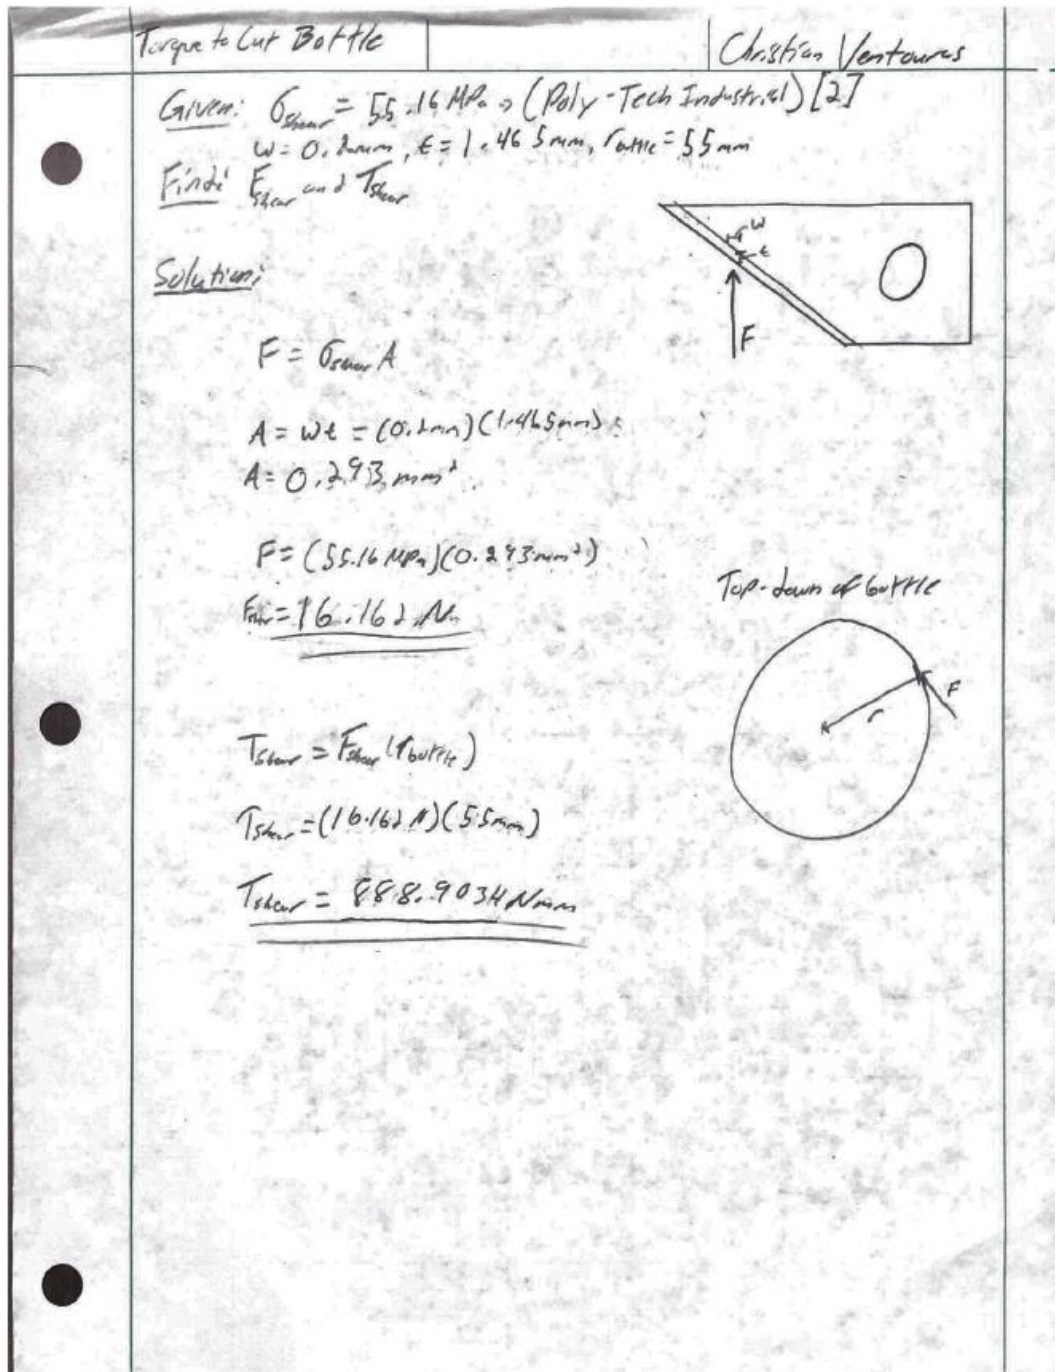 Torque to Cut Bottle
Christian Ventouras
Given: σshear = 55.16 MPa → (Poly-Tech Industrial) [2]
w = 0.2mm, t = 1.465mm, rbottle = 55mm
Find: Fshear and Tshear
w
t
F
Solution:
F = σshear A
A = wt = (0.2mm)(1.465mm)
A = 0.293 mm²
F = (55.16 MPa)(0.293mm²)
Fshear = 16.162 N
Top-down of bottle
F
r
Tshear = Fshear (rbottle)
Tshear = (16.162 N)(55mm)
Tshear = 888.9034 Nmm